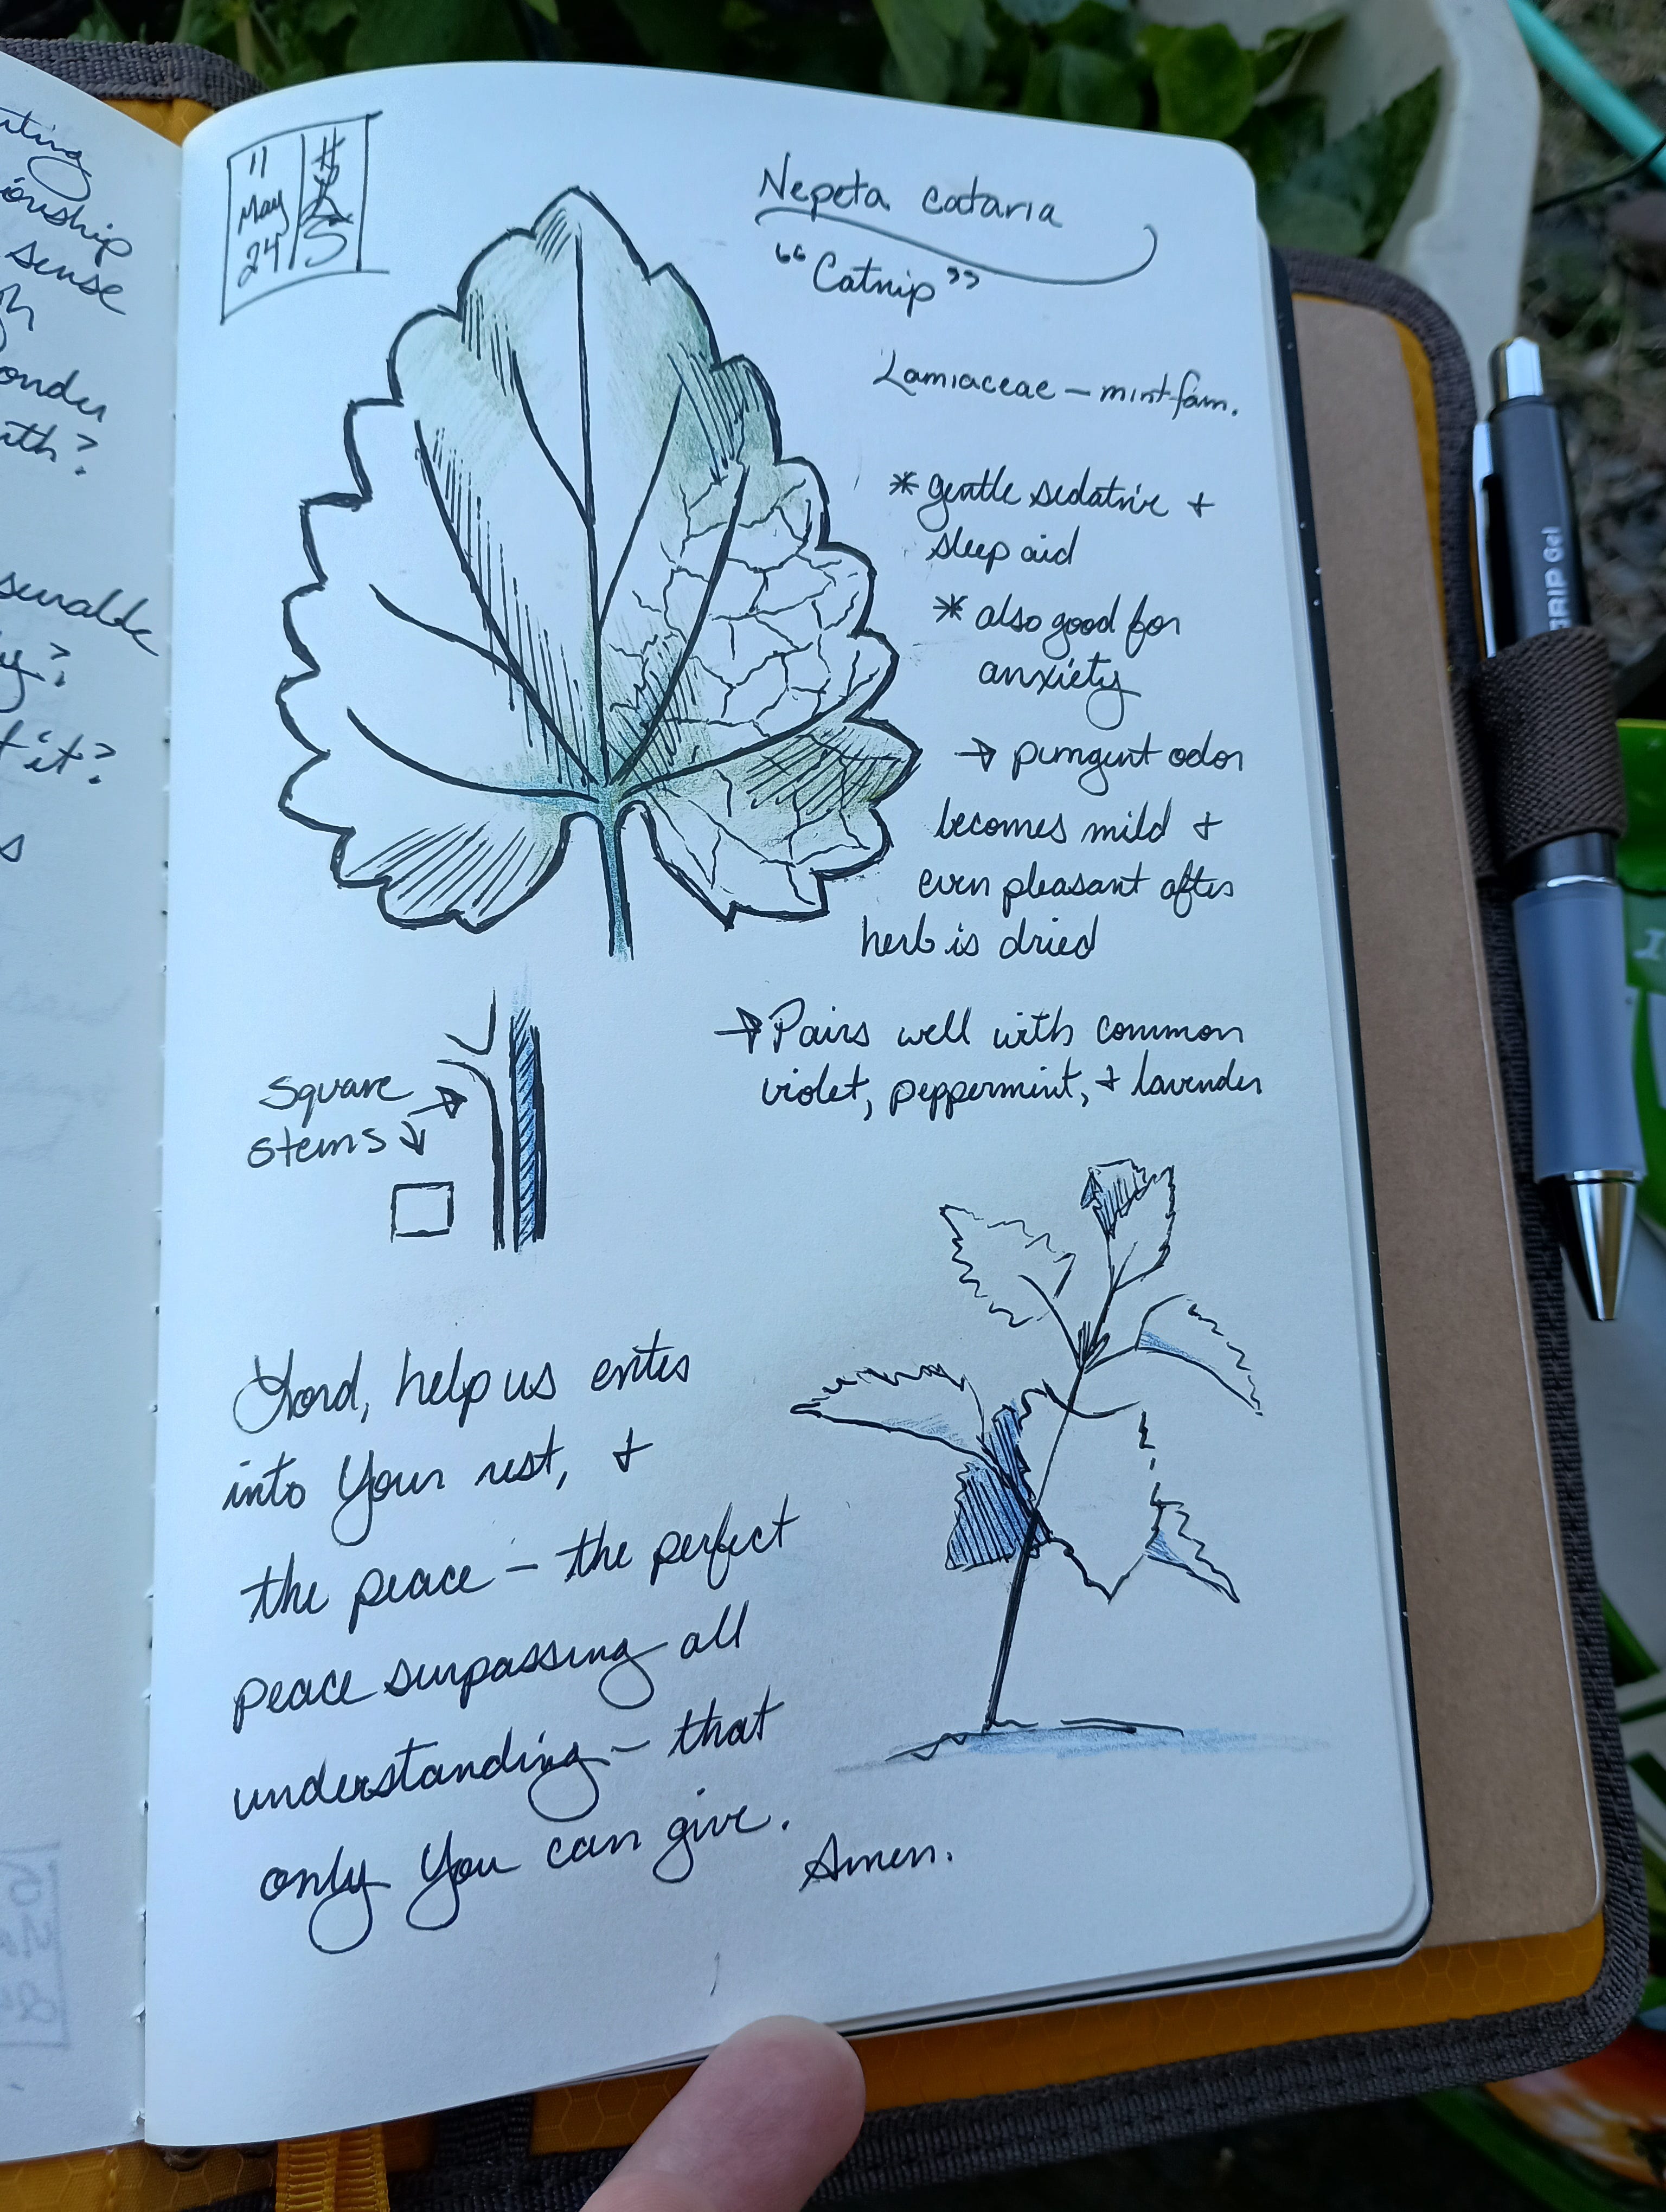 ionship
sense
onder
ith?
y?
it?
s
11
May
24
Nepeta cataria
"Catnip"
Lamiaceae – mint fam.
* gentle sedative +
sleep aid
* also good for
anxiety
→ pungent odor
becomes mild +
even pleasant after
herb is dried
→ Pairs well with common
violet, peppermint, + lavender
square
stems
Lord, help us enter
into Your rest, +
the peace – the perfect
peace surpassing all
understanding – that
only You can give.
Amen.
GRIP Gel